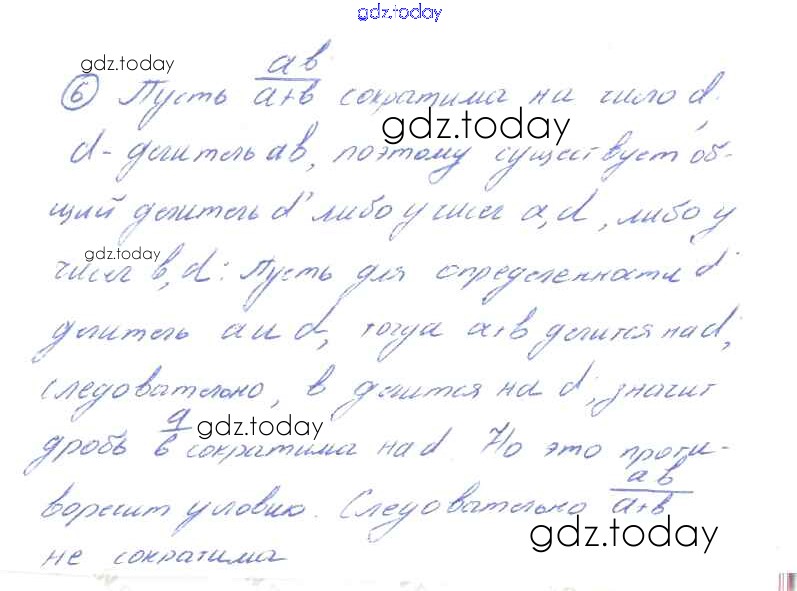 gdz.today
gdz.today
ab
⑥ Пусть a+b сократима на число d,
gdz.today
d - делитель ab, поэтому существует об-
щий делитель d' либо у чисел a, d, либо у
gdz.today
чисел b, d. Пусть для определенности d'
делитель a и d, тогда a+b делится на d',
следовательно, b делится на d', значит
дробь a/b сократима на d'. Но это проти-
gdz.today
воречит условию. Следовательно ab/a+b
gdz.today
не сократима